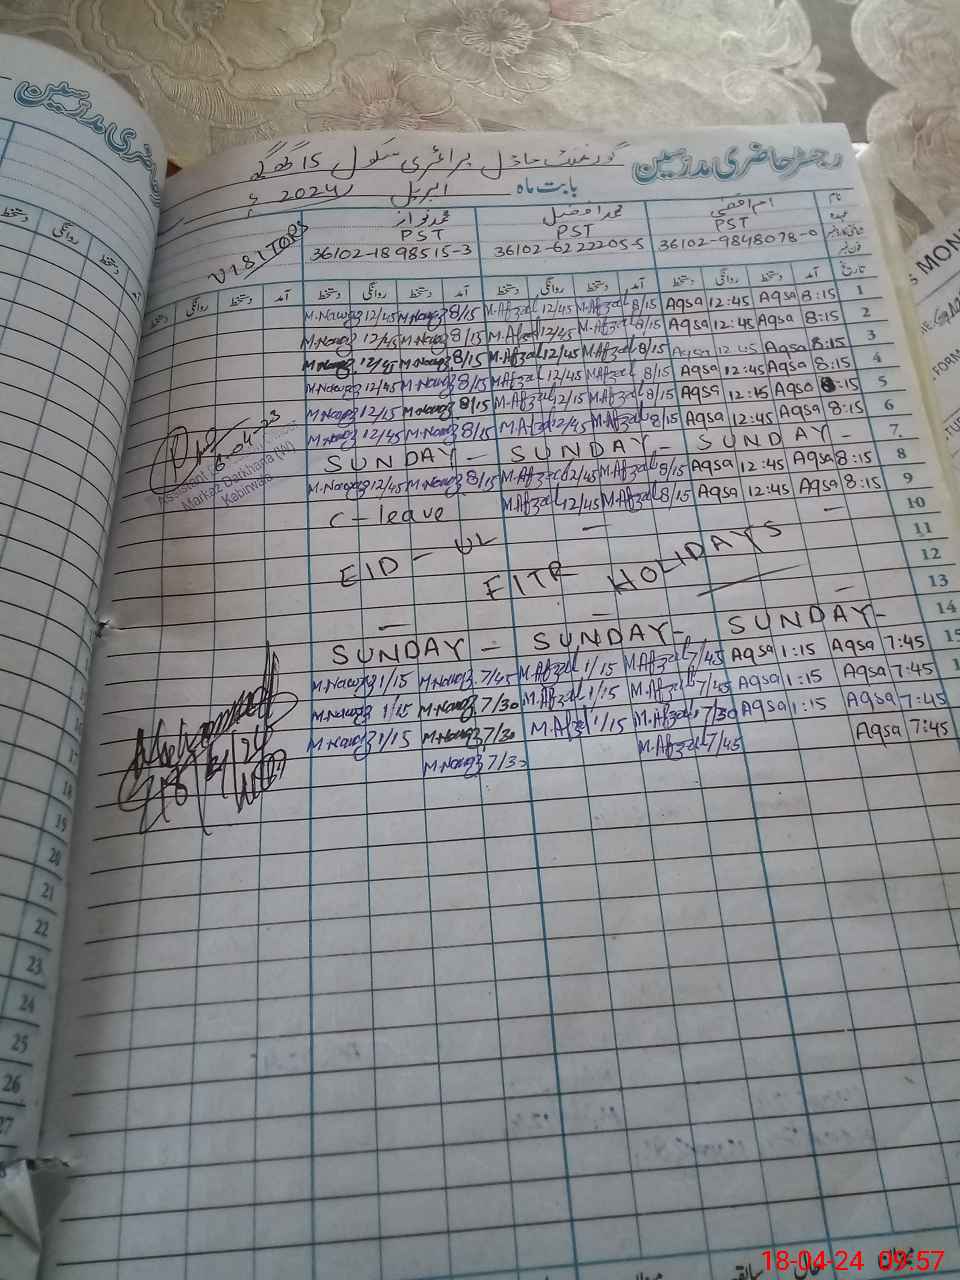 رجسٹر حاضری مدرسین گورنمنٹ ماڈل پرائمری سکول 15 گھگ
بابت ماہ اپریل 2024ء
نام ام اقصیٰ محمد افضل محمد نواز
عہدہ PST PST PST VISITORS
36102-9848078-0 36102-6222205-5 36102-1898515-3
تاریخ آمد دستخط روانگی دستخط آمد دستخط روانگی دستخط آمد دستخط روانگی دستخط آمد دستخط روانگی دستخط
M.Nawaz 12/45 M.Nawaz 8/15 M.Afzal 12/45 M.Afzal 8/15 Aqsa 12:45 Aqsa 8:15 1
M.Nawaz 12/45 M.Nawaz 8/15 M.Afzal 12/45 M.Afzal 8/15 Aqsa 12:45 Aqsa 8:15 2
M.Nawaz 12/45 M.Nawaz 8/15 M.Afzal 12/45 M.Afzal 8/15 Aqsa 12:45 Aqsa 8:15 3
M.Nawaz 12/45 M.Nawaz 8/15 M.Afzal 12/45 M.Afzal 8/15 Aqsa 12:45 Aqsa 8:15 4
M.Nawaz 12/15 M.Nawaz 8/15 M.Afzal 12/15 M.Afzal 8/15 Aqsa 12:15 Aqsa 8:15 5
M.Nawaz 12/45 M.Nawaz 8/15 M.Afzal 12/45 M.Afzal 8/15 Aqsa 12:45 Aqsa 8:15 6
SUNDAY - SUNDAY - SUNDAY - 7
M.Nawaz 12/45 M.Nawaz 8/15 M.Afzal 12/45 M.Afzal 8/15 Aqsa 12:45 Aqsa 8:15 8
C-leave M.Afzal 12/45 M.Afzal 8/15 Aqsa 12:45 Aqsa 8:15 9
10
EID - UL - FITR HOLIDAYS - 11
12
13
SUNDAY - SUNDAY - SUNDAY - 14
M.Nawaz 1/15 M.Nawaz 7/45 M.Afzal 1/15 M.Afzal 7/45 Aqsa 1:15 Aqsa 7:45 15
M.Nawaz 1/15 M.Nawaz 7/30 M.Afzal 1/15 M.Afzal 7/45 Aqsa 1:15 Aqsa 7:45
M.Nawaz 1/15 M.Nawaz 7/30 M.Afzal 1/15 M.Afzal 7/30 Aqsa 1:15 Aqsa 7:45
M.Nawaz 7/30 M.Afzal 7/45 Aqsa 7:45
Markaz Darkhana (W)
Kabirwala
17
18
19
20
21
22
23
24
25
26
27
MON
FORM
18-04-24 09:57